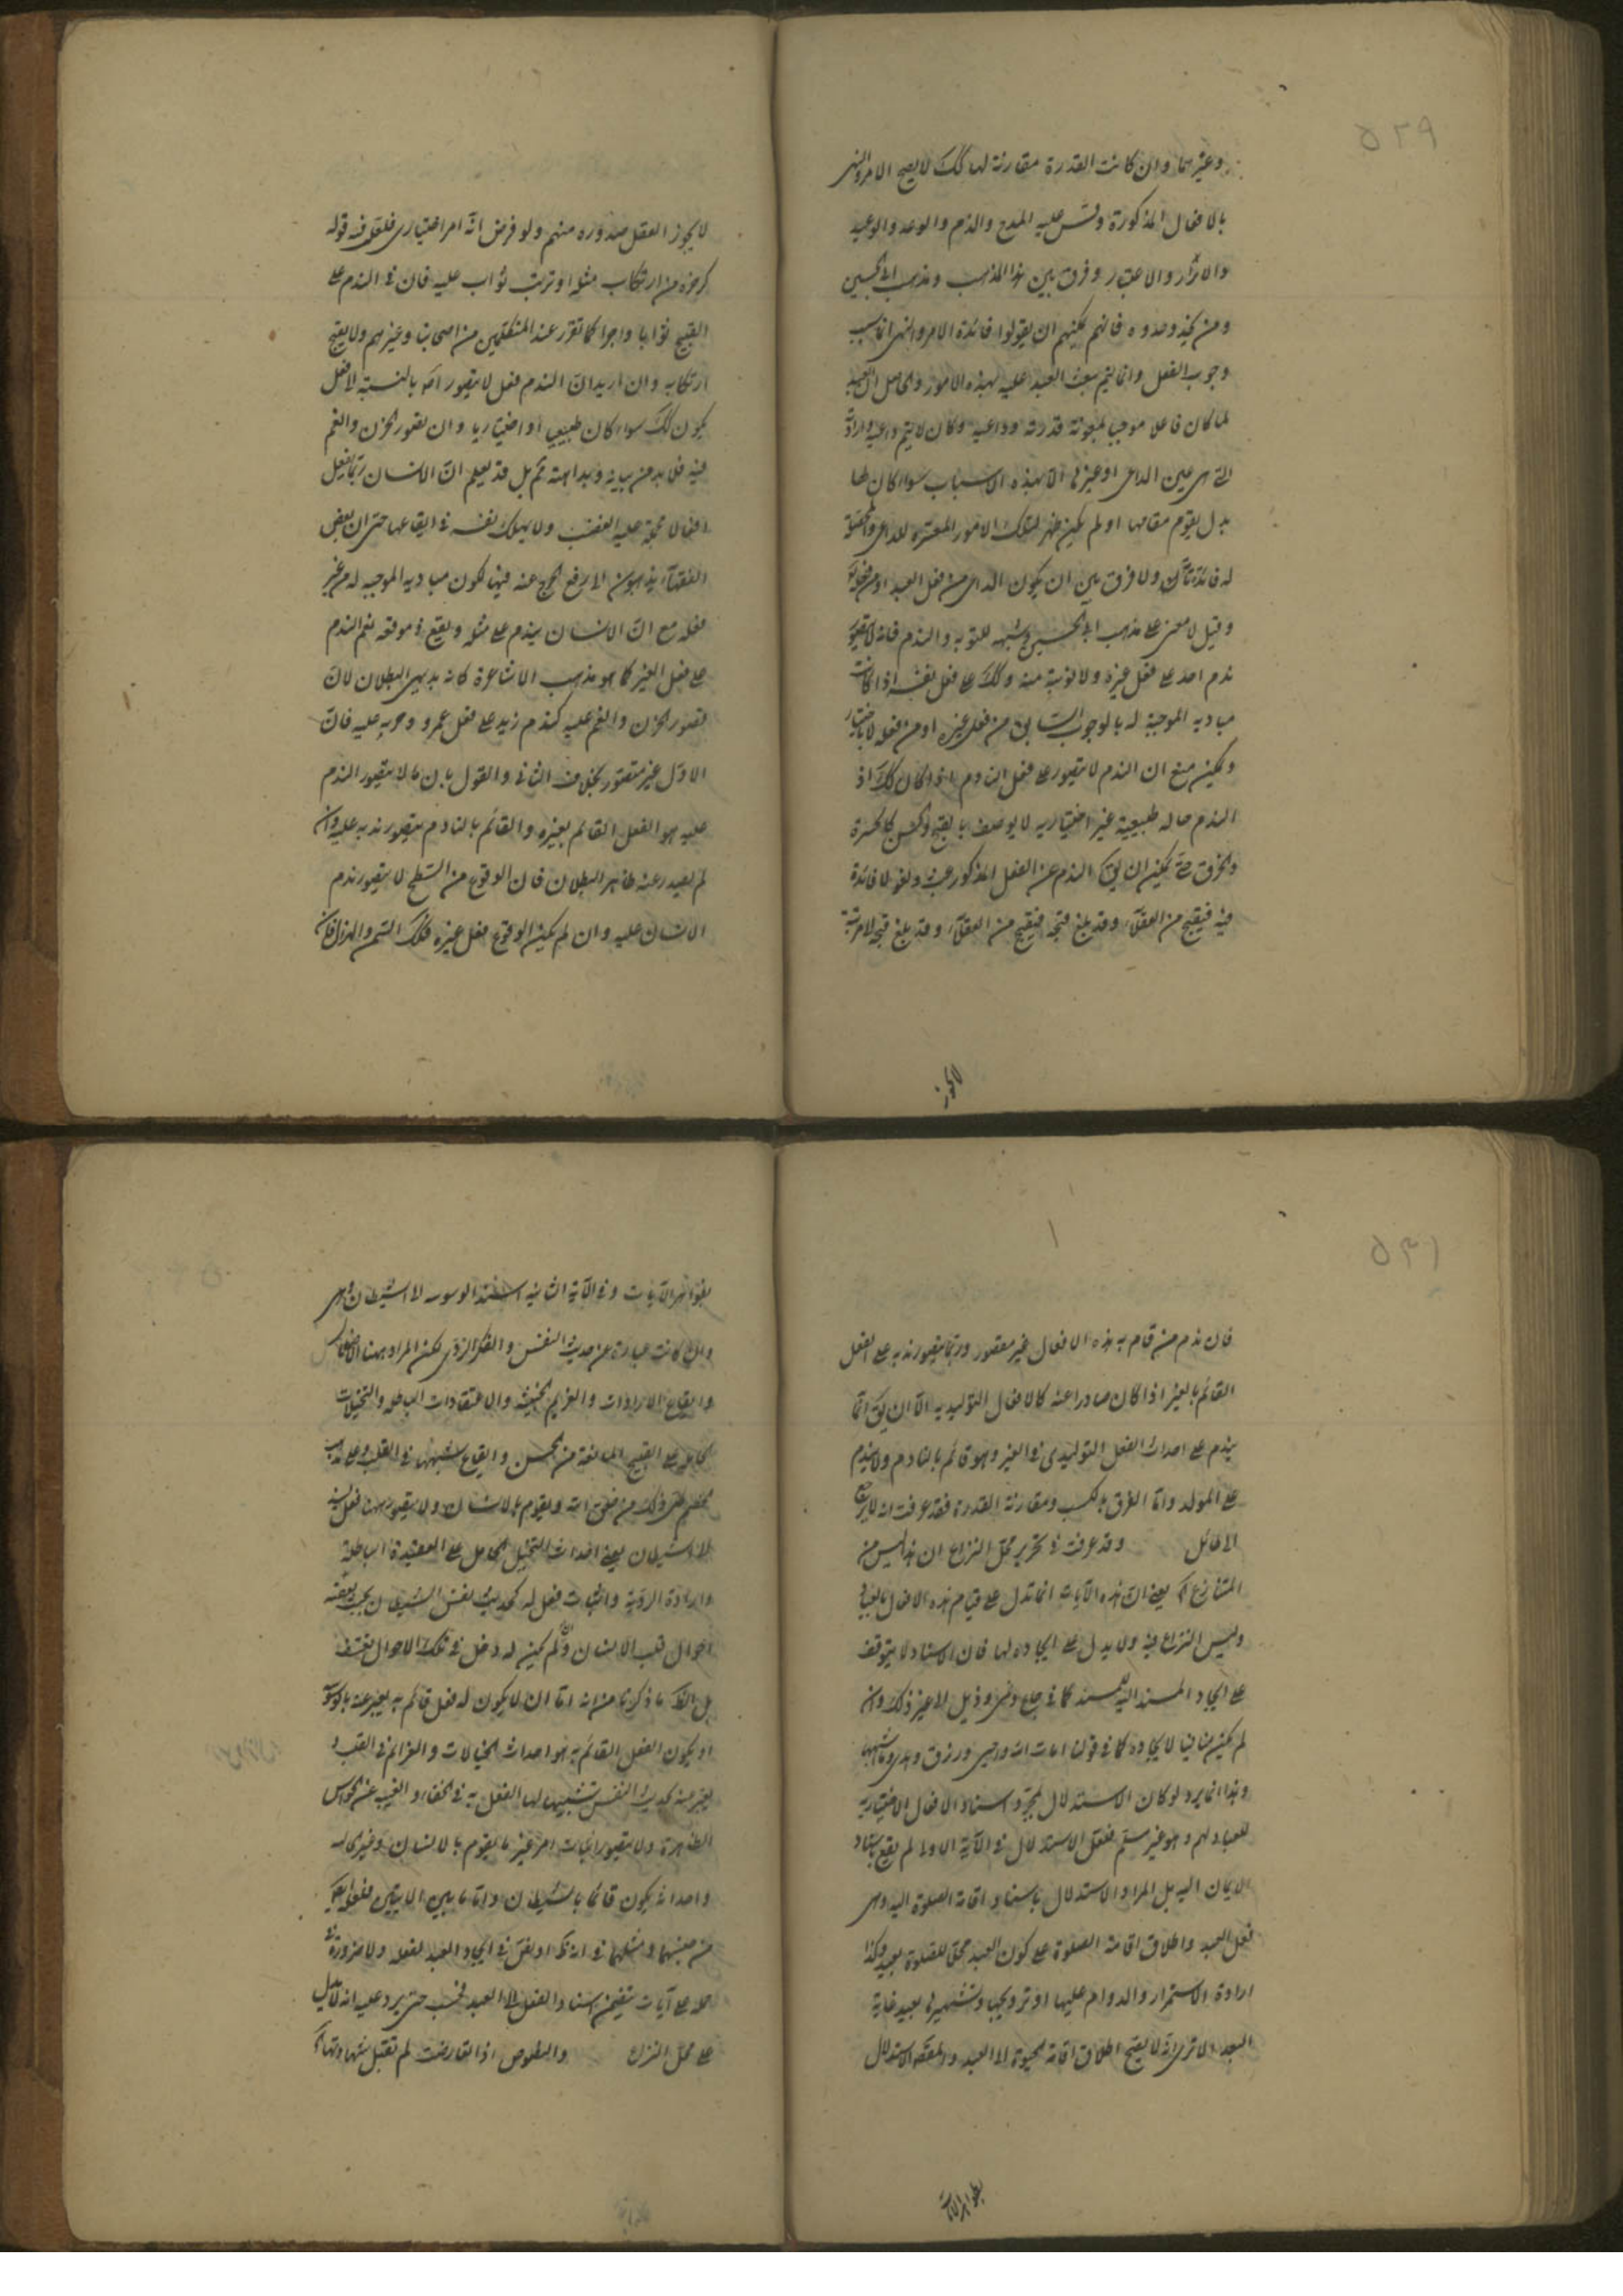 ٥٢٩
وغيرهما وان كانت القدرة مقارنة لها كك لا يصح الامر والنهى
بالافعال المذكورة وقس عليه المدح والذم والوعد والوعيد
والانذار والاعتبار وفرق بين هذا المذهب ومذهب ابى الحسين
ومن يحذو حذوه فانهم يمكنهم ان يقولوا فائدة الامر والنهى انها سبب
وجوب الفعل وانما يتم بعث العبد عليه بهذه الامور والحاصل ان العبد
لما كان فاعلا موجبا بمعونة قدرته وداعيه وكان لا يتم داعيه وارادته
التى هى عين الداعى او غيره الا بهذه الاسباب سواء كان لها
بدل يقوم مقامها او لم يكن ظهر لتلك الامور المعتبرة للداعى والمحققة
له فائدة تأمل ولا فرق بين ان يكون الداعى من فعل العبد او من فعل
وقيل لا معنى على مذهب ابى الحسين وشبهه للتوبه والندم فانه لا يتصور
ندم احد على فعل غيره ولا توبة منه وكك على فعل نفسه اذا كانت
مباديه الموجبة له بالوجوب السابق من فعل غيره او من فعله لا باختيار
ويمكن منع ان الندم لا يتصور على فعل النادم اذا كان كك اذ
الندم حاله طبيعية غير اختياريه لا يوصف بالقبح والحسن كالحسرة
والحرق حتى يمكن ان يق الندم عن الفعل المذكور عبث ولغو لا فائدة
فيه فيقبح من العقلاء وقد بلغ قبحه فيقبح من العقلاء وقد بلغ قبحه لامرتبة
لا يجوز
لا يجوز العقل صدوره منهم ولو فرض انه امر اختيارى فلعل فيه قوله
كرحزه من ارتكاب مثله او ترتب ثواب عليه فان فى الندم على
القبيح ثوابا واجرا كما تقرر عند المتكلمين من اصحابنا وغيرهم ولا يقبح
ارتكابه وان اريد ان الندم فعل لا يتصور امه بالنسبة لافعل
يكون كك سواء كان طبيعيا او اختياريا وان تصور الحزن والغم
فيه فلا بد من بيانه وبداهته ثم بل قد يعلم ان الانسان ربما يفعل
افعالا تحمله عليه الغضب ولا يملك نفسه فى ايقاعها حتى ان بعض
الفقهاء يذهبون الى رفع الحرج عنه فيها لكون مباديه الموجبه له من غير
فعله مع ان الانسان يندم على مثله ويقع فى موقعه نعم الندم
على فعل الغير كما هو مذهب الاشاعرة كانه بديهى البطلان لان
تصور الحزن والغم عليه كندم زيد على فعل عمرو وحربه عليه فان
الاول غير متصور بخلاف الثانى والقول بان ما لا يتصور الندم
عليه هو الفعل القائم بغيره والقائم بالنادم يتصور ندمه عليه وان
لم يصدر عنه ظاهر البطلان فان الوقوع من السطح لا يتصور ندم
الانسان عليه وان لم يكن الوقوع فعل غيره فكك السمن والهزال فان
٥٣١
فان ندم من قام به هذه الافعال غير متصور وربما يتصور ندمه على الفعل
القائم بالغير اذا كان صادرا عنه كالافعال التوليديه الا ان يق انما
يندم على احداث الفعل التوليدى فى الغير وهو قائم بالنادم ولا يندم
على المولد واما الفرق بالكسب ومقارنة القدرة فقد عرفت انه لا يرجع
الى طائل وقد عرفت فى تحرير محل النزاع ان هذا ليس من
المتنازع يعنى ان هذه الآيات انما تدل على قيام هذه الافعال بالعباد
وليس النزاع فيه ولا يدل على ايجاده لها فان الاسناد لا يتوقف
على ايجاد المسند اليه للمسند كما فى جاع ونمى وذبل الى غير ذلك وان
لم يكن منافيا لايجاده كما فى قولنا امات الله واحيى ورزق وهدى وما شبهها
وهذا انما يرد لو كان الاستدلال بمجرد اسناد الافعال الاختياريه
للعباد لهم وهو غير مسلم فلعل الاستدلال فى الآية الاولى لم يقع باسناد
الايمان اليه بل المراد الاستدلال باسناد اقامة الصلوة اليه وهى
فعل العبد واطلاق اقامة الصلوة على كون العبد محلا للصلوة بعيد وكذا
ارادة الاستمرار والدوام عليها او ترويجها وتشهيرها بعيد غاية
البعد الا ترى انه لا يصح اطلاق اقامة الحيوة الى العبد والمقصد الاستدلال
بظواهر الآيا
بظواهر الآيات وفى الآية الثانيه استند الوسوسه لا الشيطان وهى
وان كانت عبارة عن حديث النفس والفكر الردى لكن المراد ههنا
وايقاع الارادات والعزايم الخبيثه والاعتقادات الباطله والتخيلات
الحامله على القبيح المانعة من الحسن وايقاع شبهها فى القلب وعلى مذهب
الخصم ذلك من خلق الله ويقوم بالانسان ولا يتصور ههنا فعل يسند
لا الشيطان يعنى احداث التخيل الحامل على العقيدة الباطلة
وارادة الردية واثبات فعل له كحديث نفس الشيطان
احوال قلب الانسان ولم يكن له دخل فى تلك الاحوال تعسف
بل الظ ما ذكرنا من انه اما ان لا يكون له فعل قائم به يعبر عنه بالوسوسة
او يكون الفعل القائم به هو احداث الخيالات والعزائم فى القلب و
يعبر عنه بحديث النفس تشبيها لها الفعل به فى الخفاء والغيب عن الحواس
الظاهرة ولا يتصور اثبات امر غير ما يقوم بالانسان وغير
واحداثه يكون قائما بالشيطان واما ما بين الايتين
من جنسهما ومثلهما فى انه او نفى فى ايجاد العبد لفعله ولا ضرورة فى
حمله على آيات تتضمن اسناد الفعل الى العبد فحسب حتى يرد عليه انه لا يدل
على محل النزاع والنصوص اذا تعارضت لم تقبل شهادتها